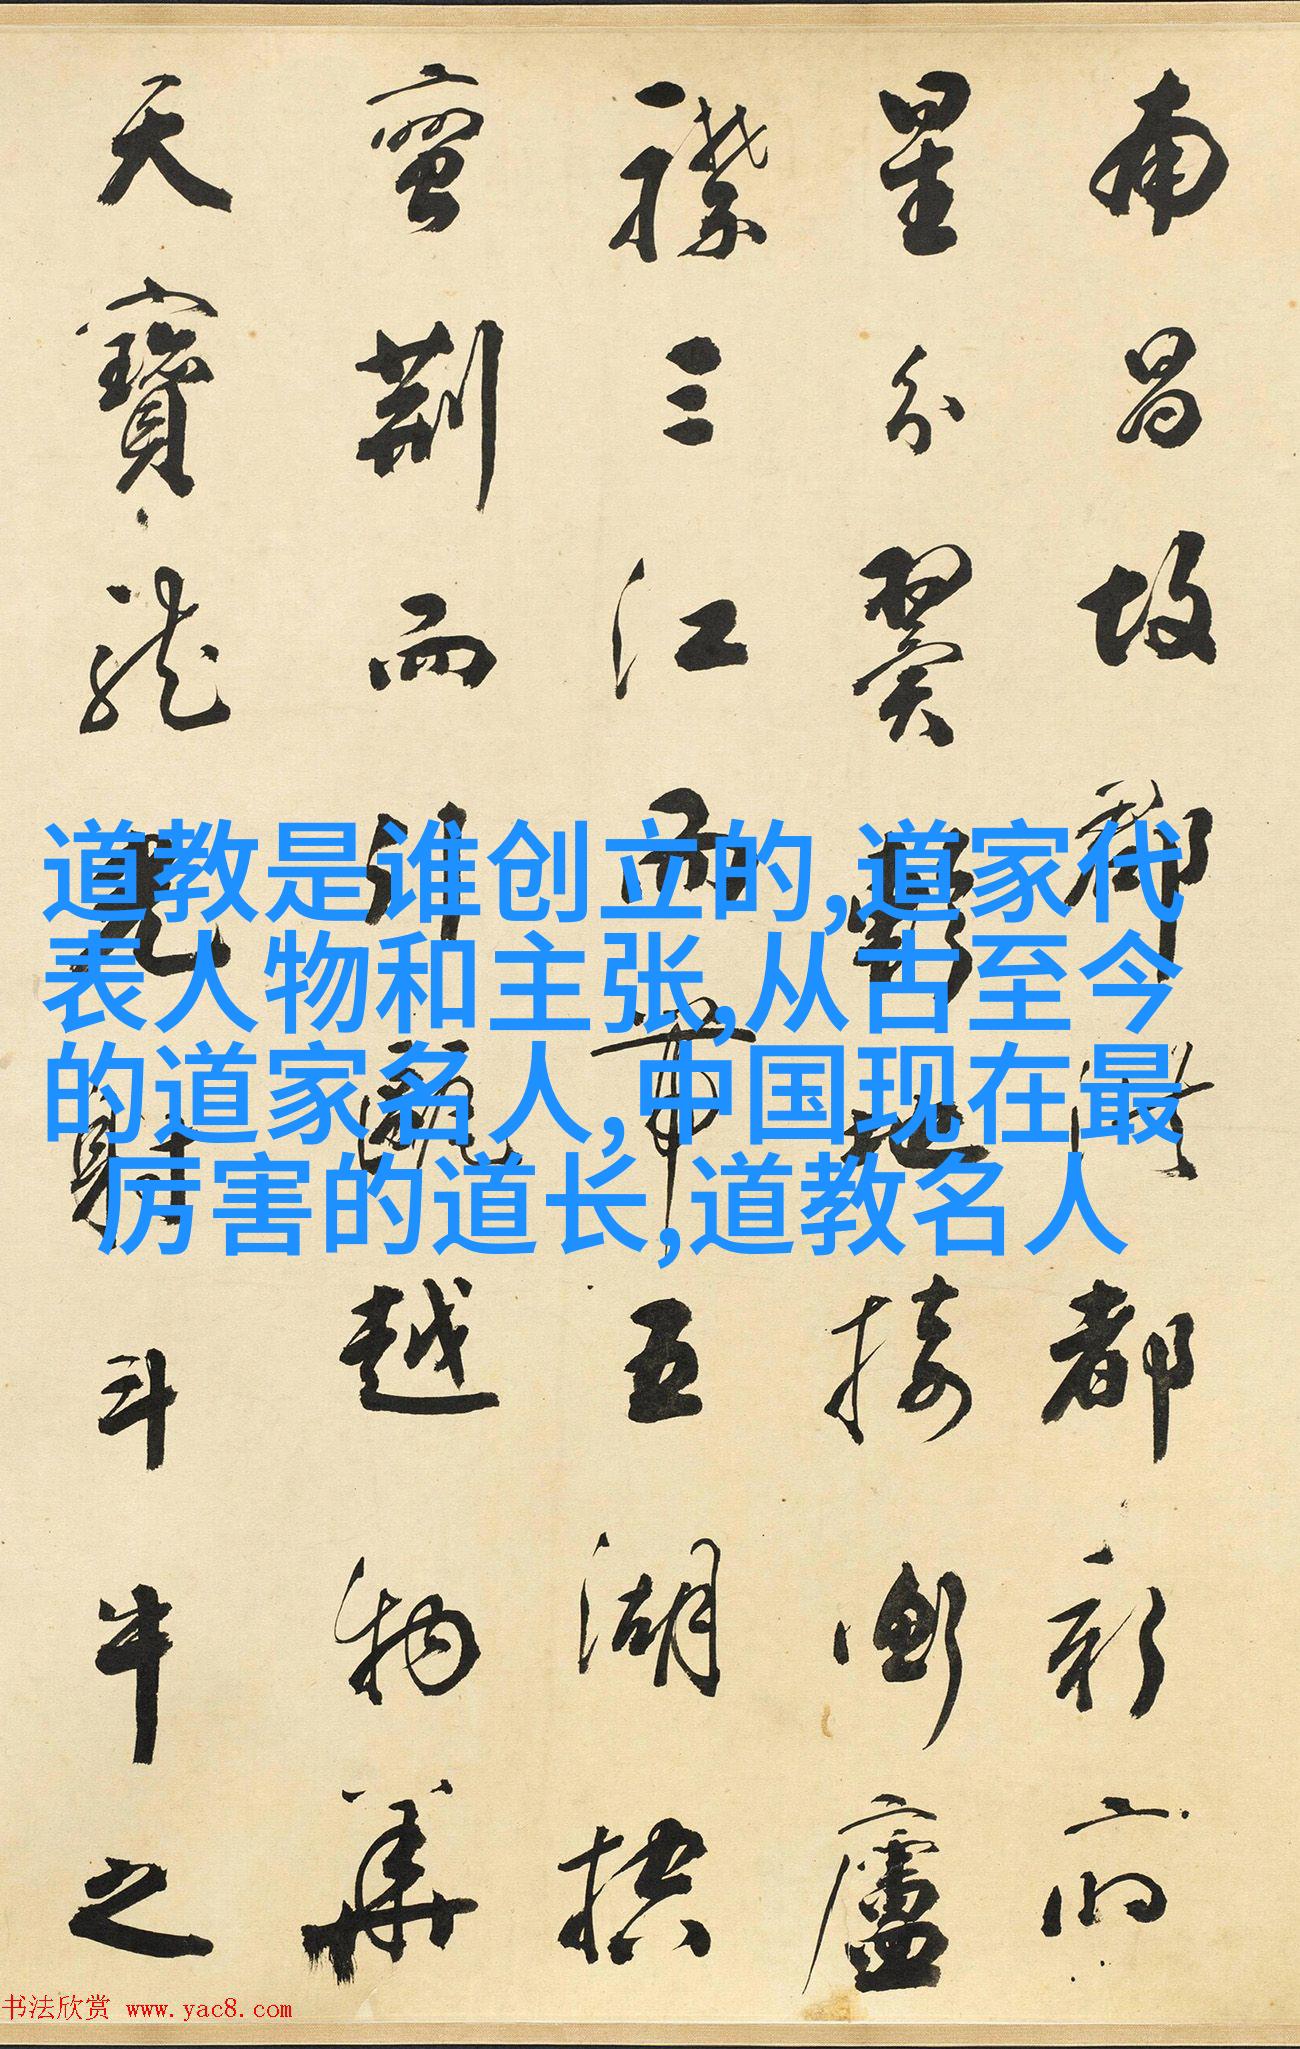 南昌故郡洪都新府
星分翼軫地接衡廬
襟三江而帶五湖控
蠻荊而引甌越物華
天寶龍光射斗牛之
道教是谁创立的,道家代
表人物和主张,从古至今
的道家名人,中国现在最
厉害的道长,道教名人
书法欣赏 www.yac8.com